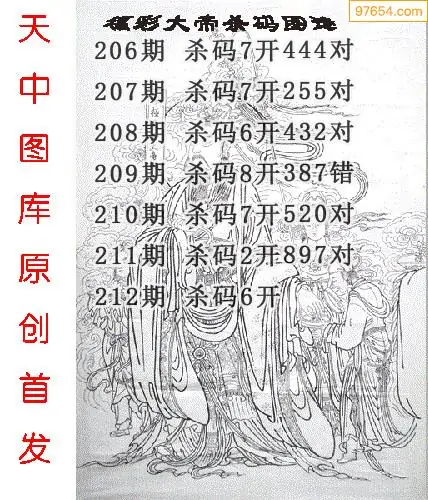 97654.com
福彩大帝杀码图迷
206期 杀码7开444对
207期 杀码7开255对
208期 杀码6开432对
209期 杀码8开387错
210期 杀码7开520对
211期 杀码2开897对
212期 杀码6开
天中图库原创首发